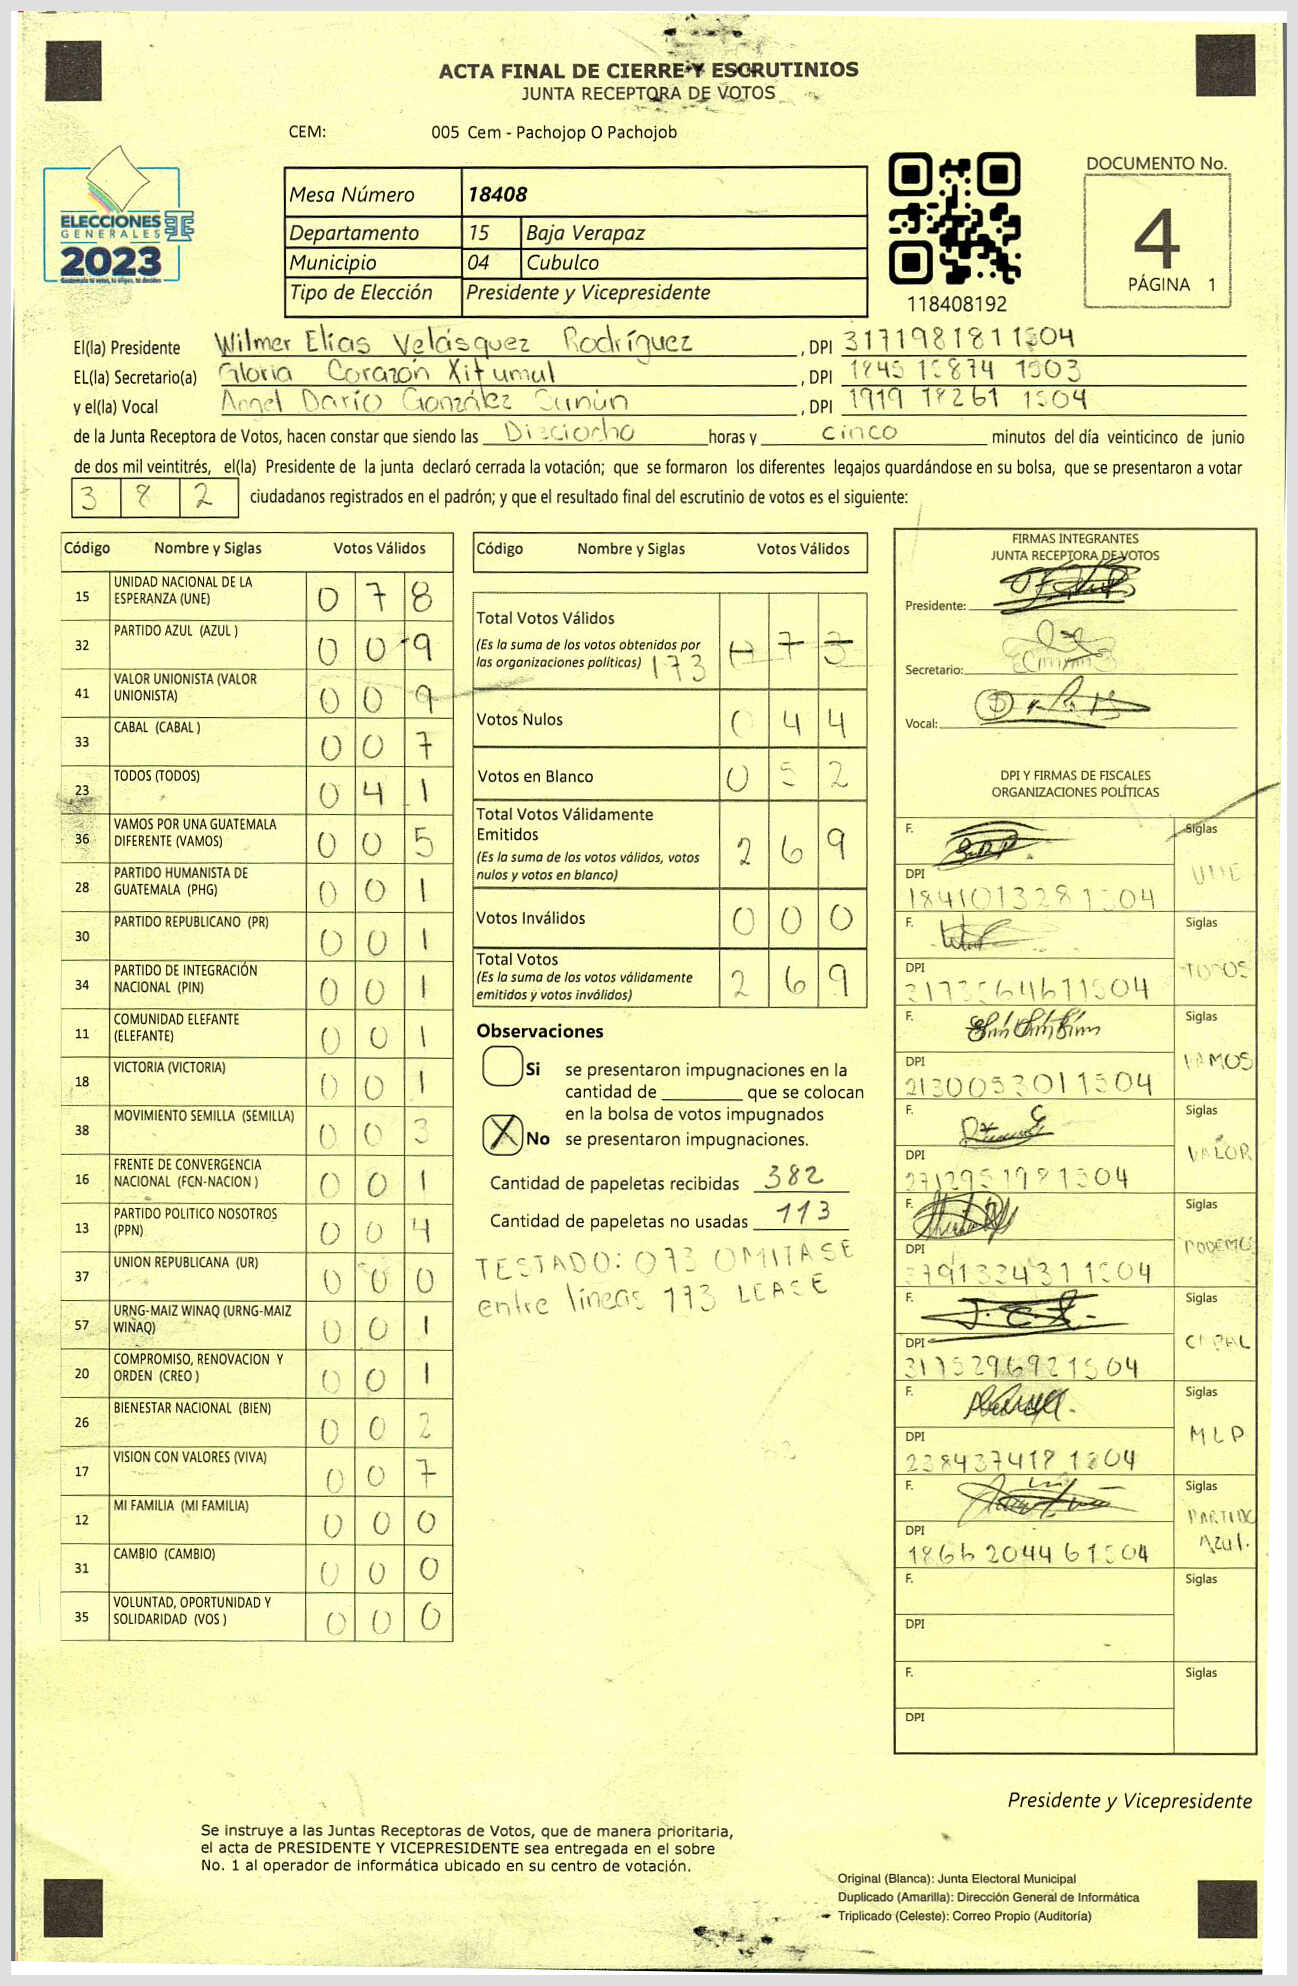 ACTA FINAL DE CIERRE Y ESCRUTINIOS
JUNTA RECEPTORA DE VOTOS
CEM: 005 Cem - Pachojop O Pachojob
ELECCIONES
GENERALES
2023
Mesa Número 18408
Departamento 15 Baja Verapaz
Municipio 04 Cubulco
Tipo de Elección Presidente y Vicepresidente
118408192
DOCUMENTO No.
4
PÁGINA 1
El(la) Presidente Wilmer Elías Velásquez Rodríguez , DPI 3171981811504
EL(la) Secretario(a) Gloria Corazón Xitumul , DPI 1503
y el(la) Vocal Angel Darío González Sunún , DPI 1919 18261 1504
de la Junta Receptora de Votos, hacen constar que siendo las Dieciocho horas y cinco minutos del día veinticinco de junio
de dos mil veintitrés, el(la) Presidente de la junta declaró cerrada la votación; que se formaron los diferentes legajos guardándose en su bolsa, que se presentaron a votar
3 8 2 ciudadanos registrados en el padrón; y que el resultado final del escrutinio de votos es el siguiente:
Código Nombre y Siglas Votos Válidos
15 UNIDAD NACIONAL DE LA ESPERANZA (UNE) 0 7 8
32 PARTIDO AZUL (AZUL ) 0 0 9
41 VALOR UNIONISTA (VALOR UNIONISTA) 0 0 9
33 CABAL (CABAL ) 0 0 7
23 TODOS (TODOS) 0 4 1
36 VAMOS POR UNA GUATEMALA DIFERENTE (VAMOS) 0 0 5
28 PARTIDO HUMANISTA DE GUATEMALA (PHG) 0 0 1
30 PARTIDO REPUBLICANO (PR) 0 0 1
34 PARTIDO DE INTEGRACIÓN NACIONAL (PIN) 0 0 1
11 COMUNIDAD ELEFANTE (ELEFANTE) 0 0 1
18 VICTORIA (VICTORIA) 0 0 1
38 MOVIMIENTO SEMILLA (SEMILLA) 0 0 3
16 FRENTE DE CONVERGENCIA NACIONAL (FCN-NACION ) 0 0 1
13 PARTIDO POLITICO NOSOTROS (PPN) 0 0 4
37 UNION REPUBLICANA (UR) 0 0 0
57 URNG-MAIZ WINAQ (URNG-MAIZ WINAQ) 0 0 1
20 COMPROMISO, RENOVACION Y ORDEN (CREO ) 0 0 1
26 BIENESTAR NACIONAL (BIEN) 0 0 2
17 VISION CON VALORES (VIVA) 0 0 7
12 MI FAMILIA (MI FAMILIA) 0 0 0
31 CAMBIO (CAMBIO) 0 0 0
35 VOLUNTAD, OPORTUNIDAD Y SOLIDARIDAD (VOS ) 0 0 0
Código Nombre y Siglas Votos Válidos
Total Votos Válidos
(Es la suma de los votos obtenidos por
las organizaciones políticas) 173 7 3
Votos Nulos 0 4 4
Votos en Blanco 0 5 2
Total Votos Válidamente
Emitidos 2 6 9
(Es la suma de los votos válidos, votos
nulos y votos en blanco)
Votos Inválidos 0 0 0
Total Votos
(Es la suma de los votos válidamente
emitidos y votos inválidos) 2 6 9
Observaciones
Si se presentaron impugnaciones en la
cantidad de ________ que se colocan
en la bolsa de votos impugnados
X No se presentaron impugnaciones.
Cantidad de papeletas recibidas 382
Cantidad de papeletas no usadas 113
TESTADO: 073 OMITASE
entre líneas 173 LEASE
FIRMAS INTEGRANTES
JUNTA RECEPTORA DE VOTOS
Presidente:
Secretario:
Vocal:
DPI Y FIRMAS DE FISCALES
ORGANIZACIONES POLÍTICAS
F. Siglas UNE
DPI 1841013281504
F. Siglas TODOS
DPI 3173564671504
F. Siglas VAMOS
DPI 2130053011504
F. Siglas VALOR
DPI 2712951981504
F. Siglas PODEMOS
DPI
F. Siglas CABAL
DPI 3175296921504
F. Siglas MLP
DPI
F. Siglas PARTIDO Azul.
DPI 1866204461504
F. Siglas
DPI
F. Siglas
DPI
Presidente y Vicepresidente
Se instruye a las Juntas Receptoras de Votos, que de manera prioritaria,
el acta de PRESIDENTE Y VICEPRESIDENTE sea entregada en el sobre
No. 1 al operador de informática ubicado en su centro de votación.
Original (Blanca): Junta Electoral Municipal
Duplicado (Amarilla): Dirección General de Informática
Triplicado (Celeste): Correo Propio (Auditoría)